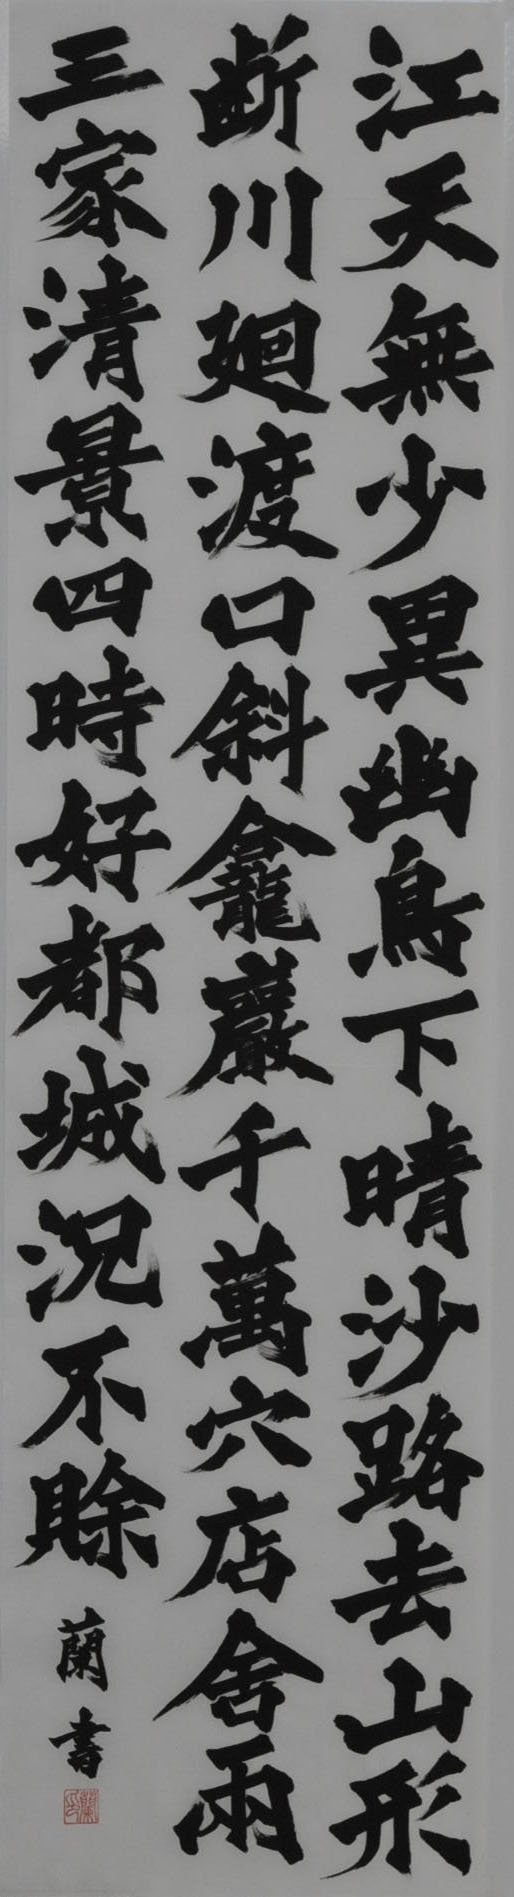 江天無少異幽鳥下晴沙路去山形
断川廻渡口斜龕巖千萬穴店舍兩
三家清景四時好都城況不賒
蘭書